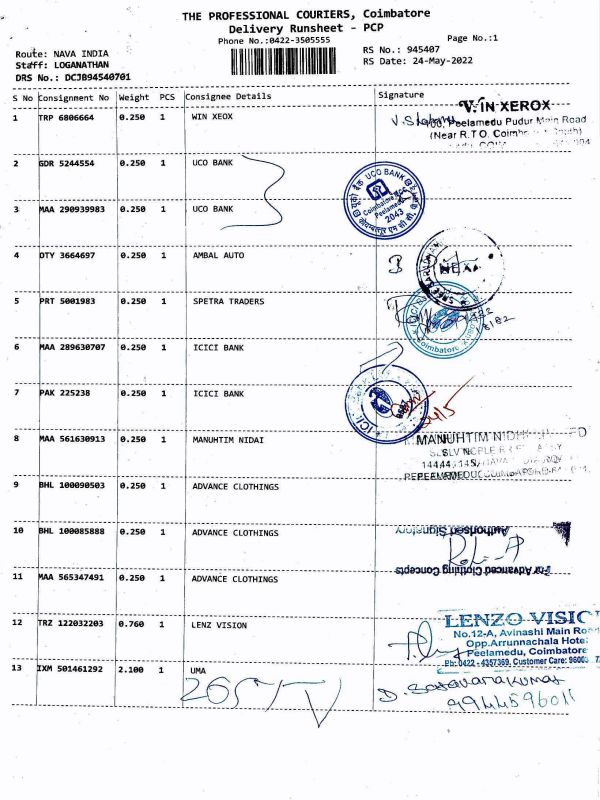 THE PROFESSIONAL COURIERS, Coimbatore
Delivery Runsheet - PCP
Phone No.:0422-3505555
Page No.:1
Route: NAVA INDIA
RS No.: 945407
Staff: LOGANATHAN
RS Date: 24-May-2022
DRS No.: DCJB94540701
S No Consignment No Weight PCS Consignee Details Signature
1 TRP 6806664 0.250 1 WIN XEOX
IN XEROX
Peelamedu Pudur Main Road
(Near R.T.O.
2 GDR 5244554 0.250 1 UCO BANK
UCO BANK
Coimbatore
Peelamedu
2043
3 MAA 290939983 0.250 1 UCO BANK
4 OTY 3664697 0.250 1 AMBAL AUTO
NEXA
5 PRT 5001983 0.250 1 SPETRA TRADERS
Coimbatore
6 MAA 289630707 0.250 1 ICICI BANK
7 PAK 225238 0.250 1 ICICI BANK
8 MAA 561630913 0.250 1 MANUHTIM NIDAI
MANUHTIM
9 BHL 100090503 0.250 1 ADVANCE CLOTHINGS
10 BHL 100085888 0.250 1 ADVANCE CLOTHINGS
Authorised Signatory
For Advanced Clothing Concepts
11 MAA 565347491 0.250 1 ADVANCE CLOTHINGS
12 TRZ 122032203 0.760 1 LENZ VISION
LENZO VISIC
No.12-A, Avinashi Main Road
Opp.Arrunnachala Hotel
Peelamedu, Coimbatore
Ph:0422 - 4357369, Customer Care:
13 IXM 501461292 2.100 1 UMA
D. Saravanakumar
9944596011